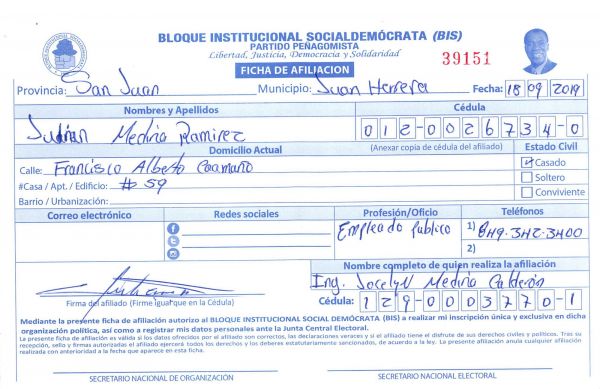 BLOQUE INSTITUCIONAL SOCIALDEMÓCRATA (BIS)
PARTIDO PEÑAGOMISTA
Libertad, Justicia, Democracia y Solidaridad
39151
FICHA DE AFILIACION
Provincia: San Juan Municipio: Juan Herrera Fecha: 18 09 2019
Nombres y Apellidos Cédula
Medina Ramirez 012-0026734-0
Domicilio Actual (Anexar copia de cédula del afiliado) Estado Civil
Calle: Francisco Alberto Caamaño Casado
#Casa / Apt. / Edificio: # 59 Soltero
Barrio / Urbanización: Conviviente
Correo electrónico Redes sociales Profesión/Oficio Teléfonos
Empleado Publico 1) 849-342-3400
2)
Nombre completo de quien realiza la afiliación
Ing. Jocelyn Medina Calderón
Firma del afiliado (Firme igual que en la Cédula) Cédula: 129-0003770-1
Mediante la presente ficha de afiliación autorizo al BLOQUE INSTITUCIONAL SOCIAL DEMÓCRATA (BIS) a realizar mi inscripción única y exclusiva en dicha
organización política, así como a registrar mis datos personales ante la Junta Central Electoral.
La presente ficha de afiliación es valida si los datos ofrecidos por el afiliado son correctos, las declaraciones veraces y si el afiliado tiene el disfrute de sus derechos civiles y políticos. Tras su
recepción, sello y firmas autorizadas el afiliado ejercerá todos los derechos y los deberes estatutariamente sancionados, de acuerdo a la ley. La presente afiliación anula cualquier afiliación
realizada con anterioridad a la fecha que aparece en esta ficha.
SECRETARIO NACIONAL DE ORGANIZACIÓN SECRETARIO NACIONAL ELECTORAL